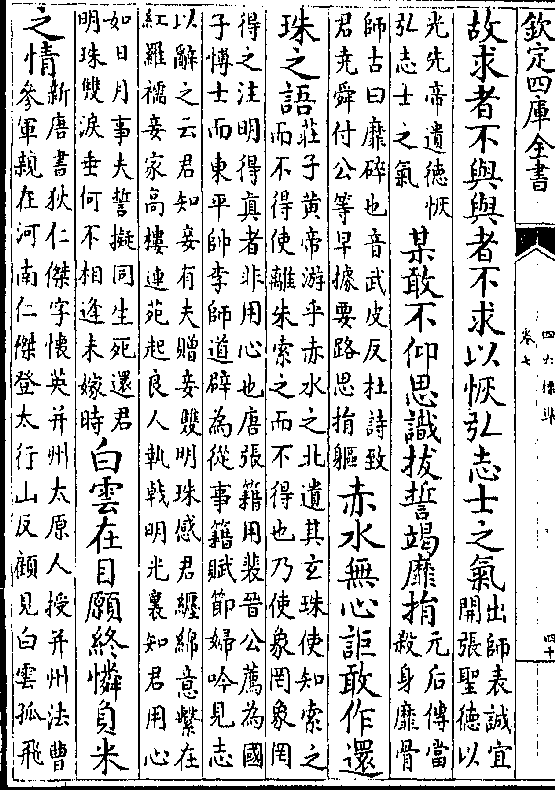 欽定四庫全書
四六標準
卷七
四十
故求者不與與者不求以恢弘志士之氣
出師表誠宜
開張聖德以
光先帝遺德恢
弘志士之氣
某敢不仰思識拔誓竭靡捐
元后傳當
殺身靡骨
師古曰靡碎也音武皮反杜詩致
君堯舜付公等早據要路思捐軀
赤水無心詎敢作還
珠之語
莊子黃帝游乎赤水之北遺其玄珠使知索之
而不得使離朱索之而不得也乃使象罔象罔
得之注明得真者非用心也唐張籍用裴晉公薦為國
子博士而東平帥李師道辟為從事籍賦節婦吟見志
以辭之云君知妾有夫贈妾雙明珠感君纏綿意繫在
紅羅襦妾家高樓連苑起良人執戟明光裏知君用心
如日月事夫誓擬同生死還君
明珠雙淚垂何不相逢未嫁時
白雲在目願終憐負米
之情
新唐書狄仁傑字懷英并州太原人授并州法曹
參軍親在河南仁傑登太行山反顧見白雲孤飛